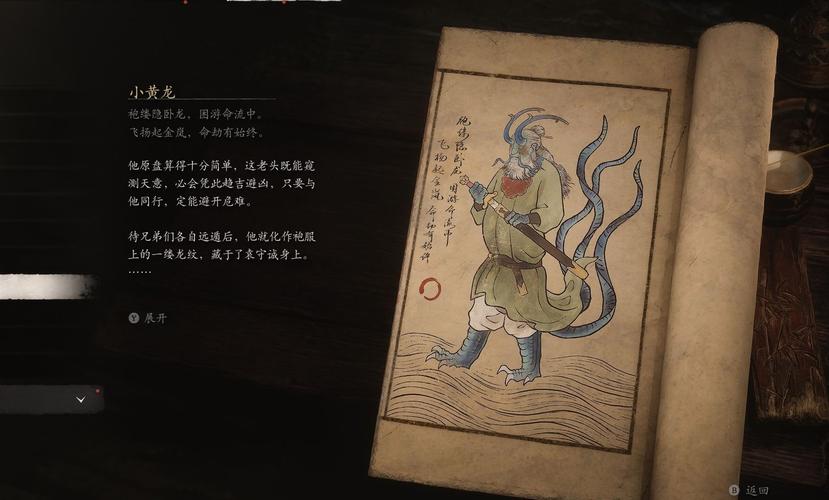 小黄龙
袍缕隐卧龙，困游命流中。
飞扬起金岚，命劫有始终。
他原盘算得十分简单，这老头既能窥
测天意，必会凭此趋吉避凶，只要与
他同行，定能避开危难。
待兄弟们各自远遁后，他就化作袍服
上的一缕龙纹，藏于了袁守诚身上。
……
Y 展开
袍缕隐卧龙 困游命流中
飞扬起金岚 命劫有始终
B 返回